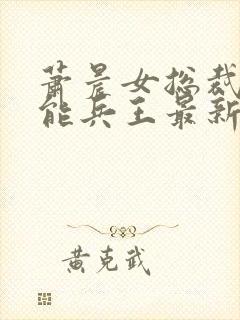 萧晨女总裁
能兵王最新
黄克武